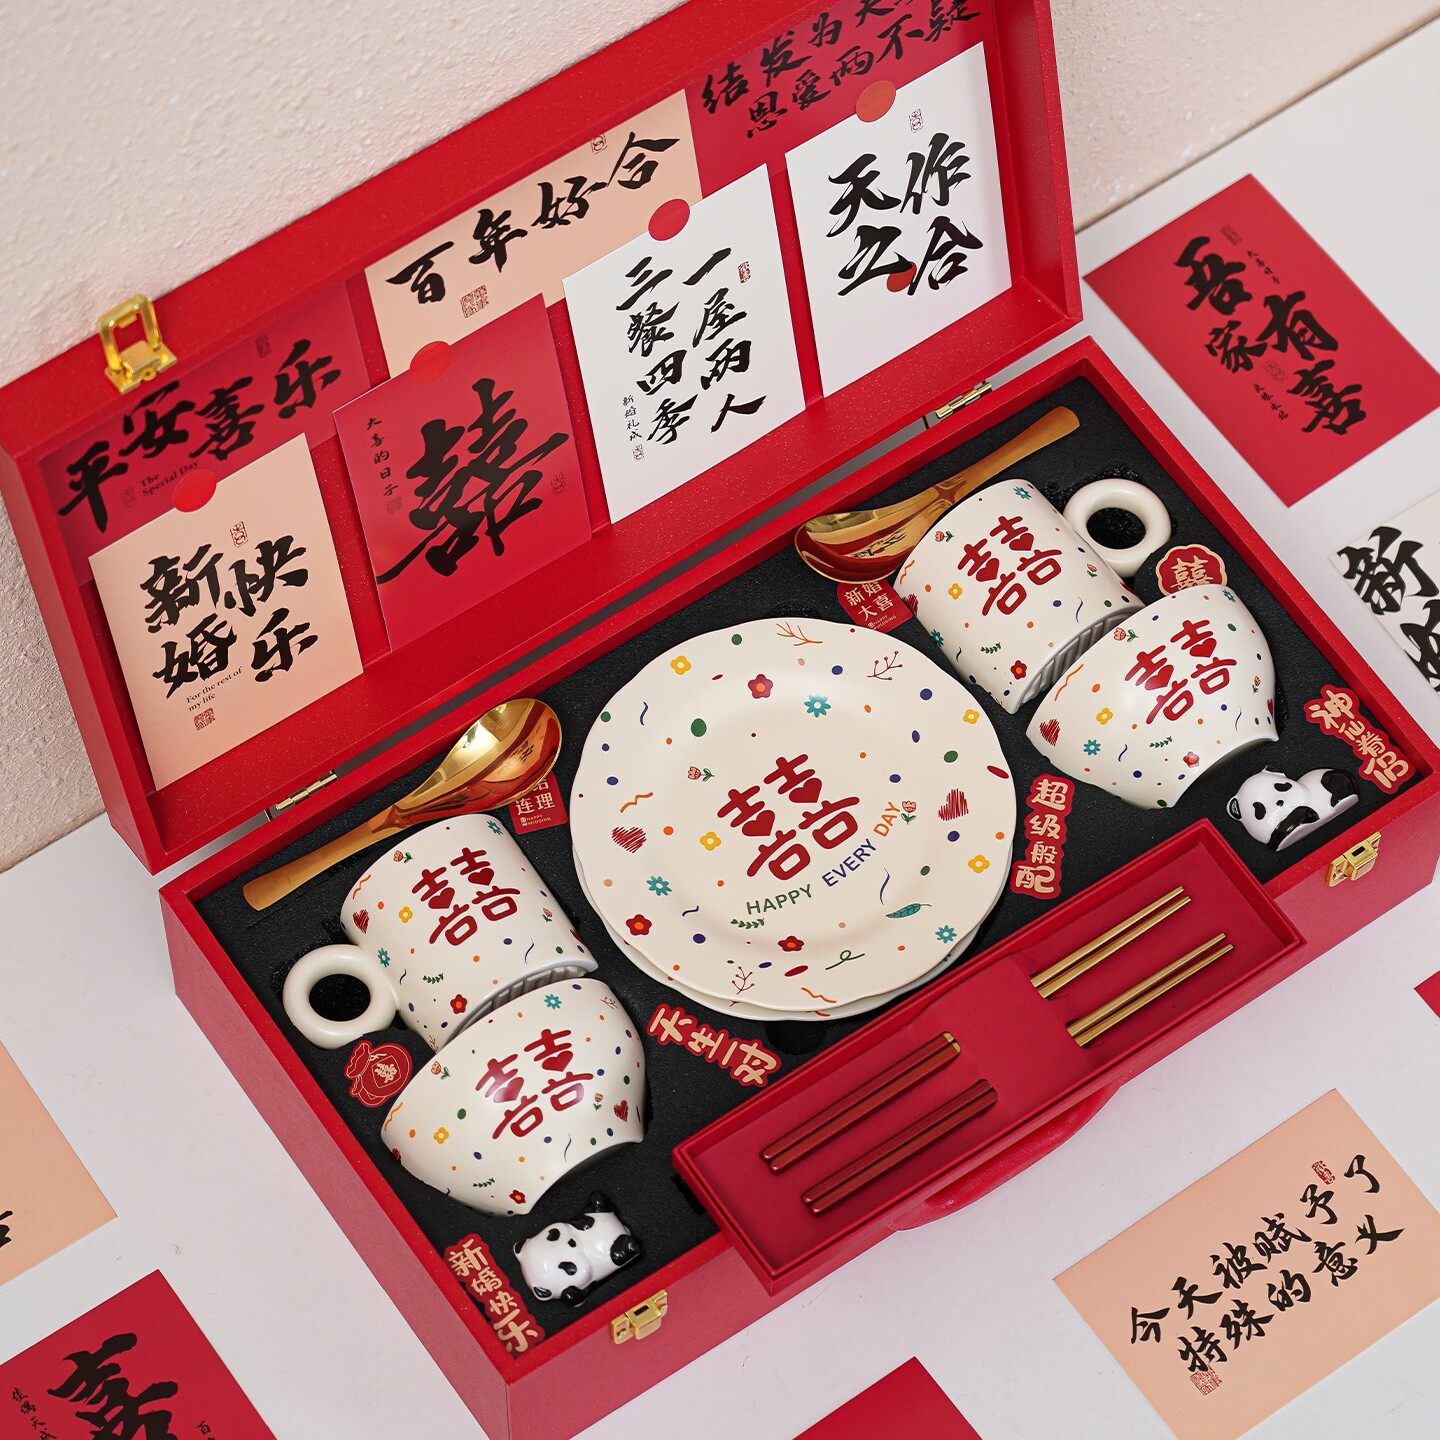 结发为夫
恩爱两不疑
百年好合
天作
之合
一屋两人
三餐四季
新婚礼成
平安喜乐
The
Special Day
囍
大喜的日子
新婚快乐
For the rest of
my life
吾家有喜
大喜日子
新婚
大喜
HAPPY
WEDDING
囍
囍
囍
神仙眷侣
超级般配
连理
HAPPY
WEDDING
囍
HAPPY EVERY DAY
囍
囍
囍
天生一对
新婚快乐
新
今天被赋予了
特殊的意义
喜
佳偶天成
百